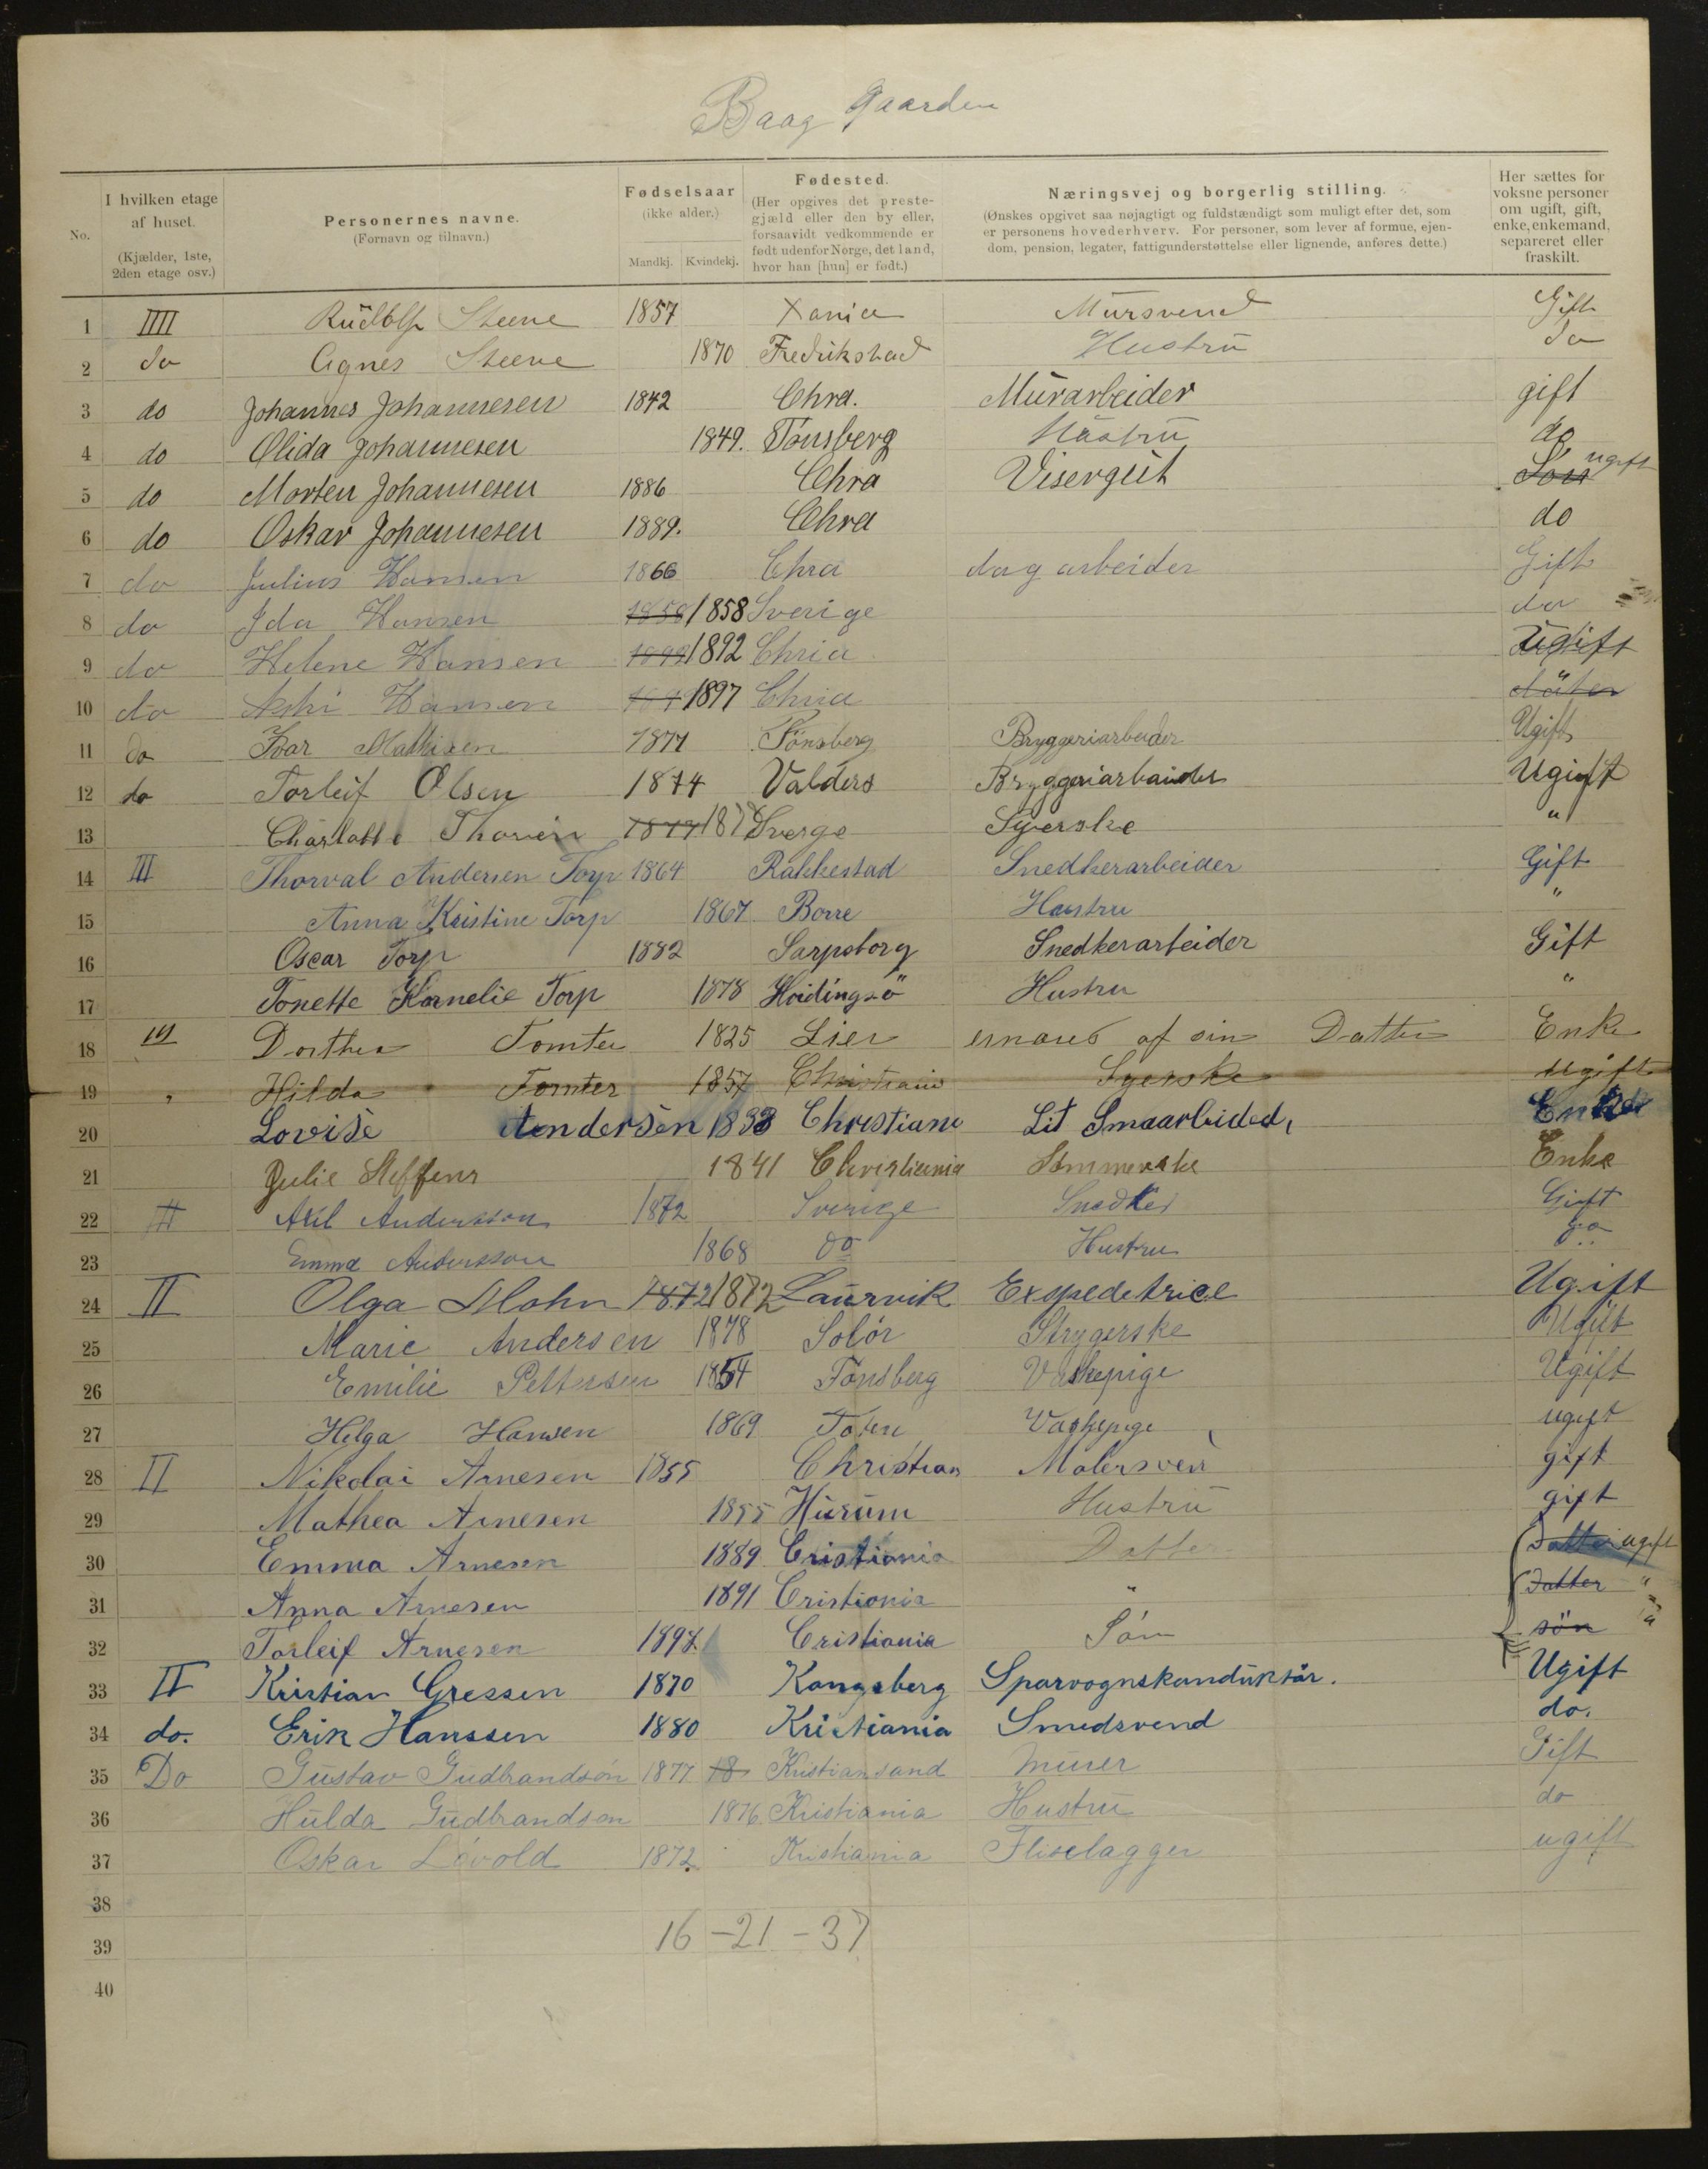 Baag gaarden
No. | I hvilken etage af huset. (Kjælder, 1ste, 2den etage osv.) | Personernes navne. (Fornavn og tilnavn.) | Fødselsaar (ikke alder.) Mandkj. Kvindekj. | Fødested. (Her opgives det prestegjæld eller den by eller, forsaavidt vedkommende er født udenfor Norge, det land, hvor han [hun] er født.) | Næringsvej og borgerlig stilling. (Ønskes opgivet saa nøjagtigt og fuldstændigt som muligt efter det, som er personens hovederhverv. For personer, som lever af formue, ejendom, pension, legater, fattigunderstøttelse eller lignende, anføres dette.) | Her sættes for voksne personer om ugift, gift, enke, enkemand, separeret eller fraskilt.
1 IIII Rudolf Steene 1857 Xania Mursvend Gift
2 do Agnes Steene 1870 Fredrikstad Hustru do
3 do Johannes Johannesen 1842 Chra. Murarbeider gift
4 do Olida Johannesen 1849. Tønsberg Hustru do
5 do Morten Johannesen 1886 Chra Visergut Søn ugift
6 do Oskar Johannesen 1889. Chra do
7 do Julius Hansen 1866 Chra dag arbeider Gift
8 do Ida Hansen 1858 1858 Sverige do
9 do Helene Hansen 1892 1892 Chria Ugift
10 do Hansen 1897 Chria
11 do Ivar Mathisen 1877 Tønsberg Bryggeriarbeider Ugift
12 do Torleif Olsen 1874 Valders Bryggeriarbaider Ugift
13 Charlotte Thorén Sverge Syerske "
14 III Thorval Andersen Torp 1864 Rakkestad Snedkerarbeider Gift
15 Anna Kristine Torp 1867 Borre Hustru "
16 Oscar Torp 1882 Sarpsborg Snedkerarbeider Gift
17 Tonette Kornelie Torp 1878 Hoidingsö Hustru "
18 III Dorthea Tomter 1825 Lier ernæres af sin Datter Enke
19 " Hilda Tomter 1857 Christiania Syerske ugift
20 Lovise Andersen 1838 Christiani Lit Smaarbided, Enke
21 Julie Steffens 1841 Christiania Sømmerske Enke
22 II Axl Andersson 1872 Sverige Snedker Gift
23 Emma Andersson 1868 do Hustru do
24 II Olga Mohn 1872 1872 Laurvik Expedetrice Ugift
25 Marie Andersen 1878 Solör Strygerske Ugift
26 Emilie Pettersen 1854 Tønsberg Vaskepige Ugift
27 Helga Hansen 1869 Toten Vaskepige ugift
28 II Nikolai Arnesen 1855 Christian Malersven gift
29 Mathea Arnesen 1855 Hurum Hustru gift
30 Emma Arnesen 1889 Cristiania Datter Datter ugift
31 Anna Arnesen 1891 Cristiania " Datter "
32 Torleif Arnesen 1897. Cristiania Søn søn "
33 II Kristian Gressen 1870 Kongsberg Sporvognskonduktør. Ugift
34 do. Erik Hanssen 1880 Kristiania Smedsvend do.
35 Do Gustav Gudbrandsön 1877 18 Kristiansand murer Gift
36 Hulda Gudbrandsøn 1876. Kristiania Hustru do
37 Oskar Lövold 1872. Kristiania Fliselagger ugift
38
39 16 - 21 - 37
40